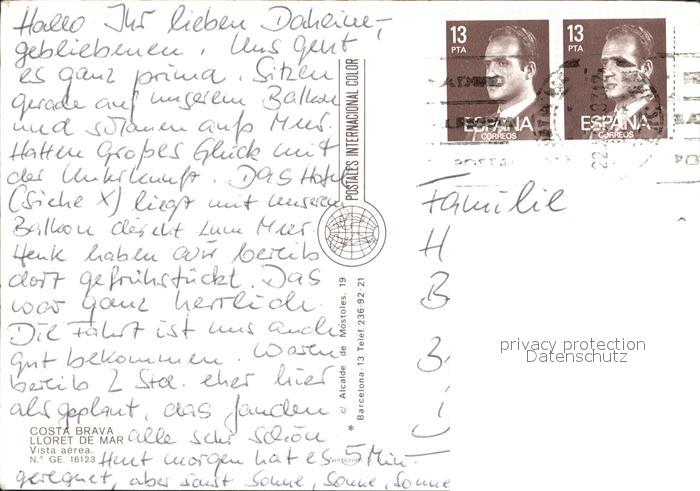 Hallo Ihr lieben Daheim-
gebliebenen. Uns geht
es ganz prima. Sitzen
gerade auf unserem Balkon
und schauen aufs Meer.
Hatten Großes Glück mit
der Unterkunft. Das Hotel
(siehe X) liegt mit unserem
Balkon direkt zum Meer.
Heute haben wir bereits
dort gefrühstückt. Das
war ganz herrlich.
Die Fahrt ist uns auch
gut bekommen. Waren
bereits 2 Std. eher hier
als geplant, das fanden
alle sehr schön.
Heut morgen hat es 5 Min.
geregnet, aber sonst Sonne, Sonne, Sonne
COSTA BRAVA
LLORET DE MAR
Vista aérea.
N.º GE. 16123
POSTALES INTERNACIONAL COLOR
c/ Alcalde de Móstoles, 19
Barcelona-13 Teléf. 236-92-21
13
PTA
ESPAÑA
CORREOS
13
PTA
ESPAÑA
CORREOS
Familie
H
B
3
privacy protection
Datenschutz